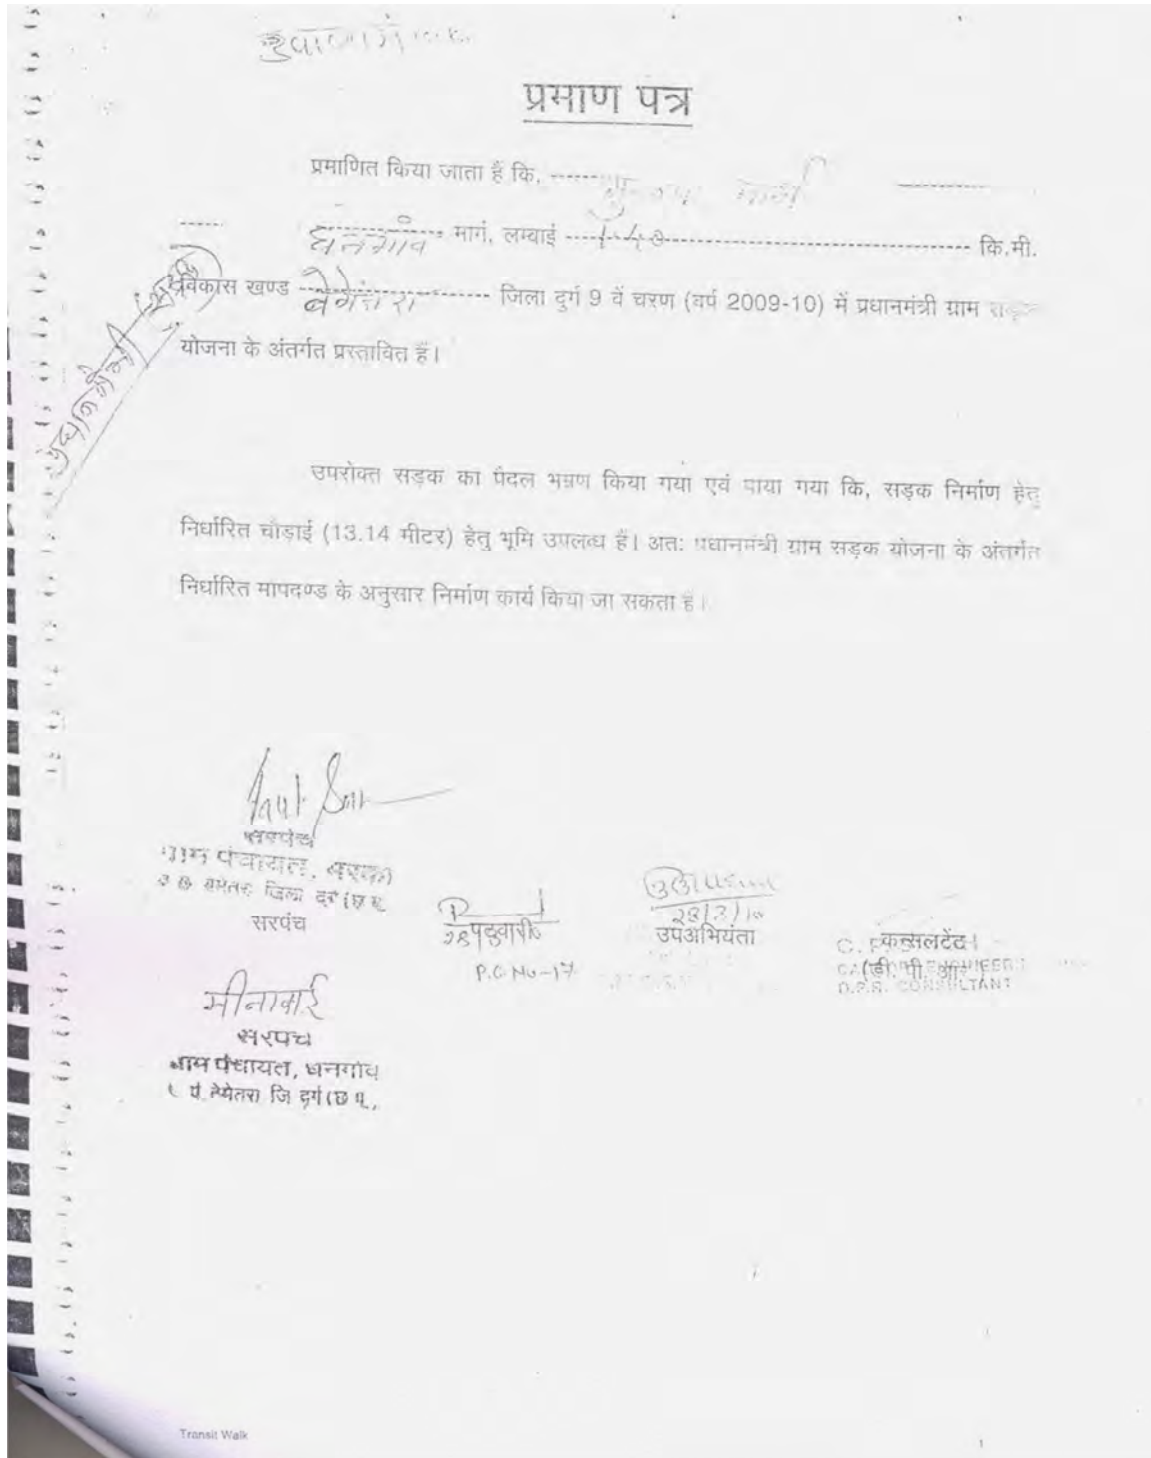 प्रमाण पत्र
प्रमाणित किया जाता है कि, ------ मुख्य मार्ग ------------
------ धनगांव मार्ग, लम्बाई ----- 1.40 ----- कि.मी.
विकास खण्ड ----- बेमेतरा ----- जिला दुर्ग 9 वें चरण (वर्ष 2009-10) में प्रधानमंत्री ग्राम सड़क
योजना के अंतर्गत प्रस्तावित है।
उपरोक्त सड़क का पैदल भम्रण किया गया एवं पाया गया कि, सड़क निर्माण हेतु
निर्धारित चौड़ाई (13.14 मीटर) हेतु भूमि उपलब्ध है। अतः प्रधानमंत्री ग्राम सड़क योजना के अंतर्गत
निर्धारित मापदण्ड के अनुसार निर्माण कार्य किया जा सकता है।
सरपंच
ग्राम पंचायत,
जिला दुर्ग (छ.ग.
सरपंच
पटवारी
P.C No-17
उपअभियंता
कन्सलटेंट
(डी. पी. आर.)
D.P.R. CONSULTANT
मीनाबाई
सरपंच
ग्राम पंचायत, धनगांव
बेमेतरा जि दुर्ग (छ ग.
Transit Walk
1